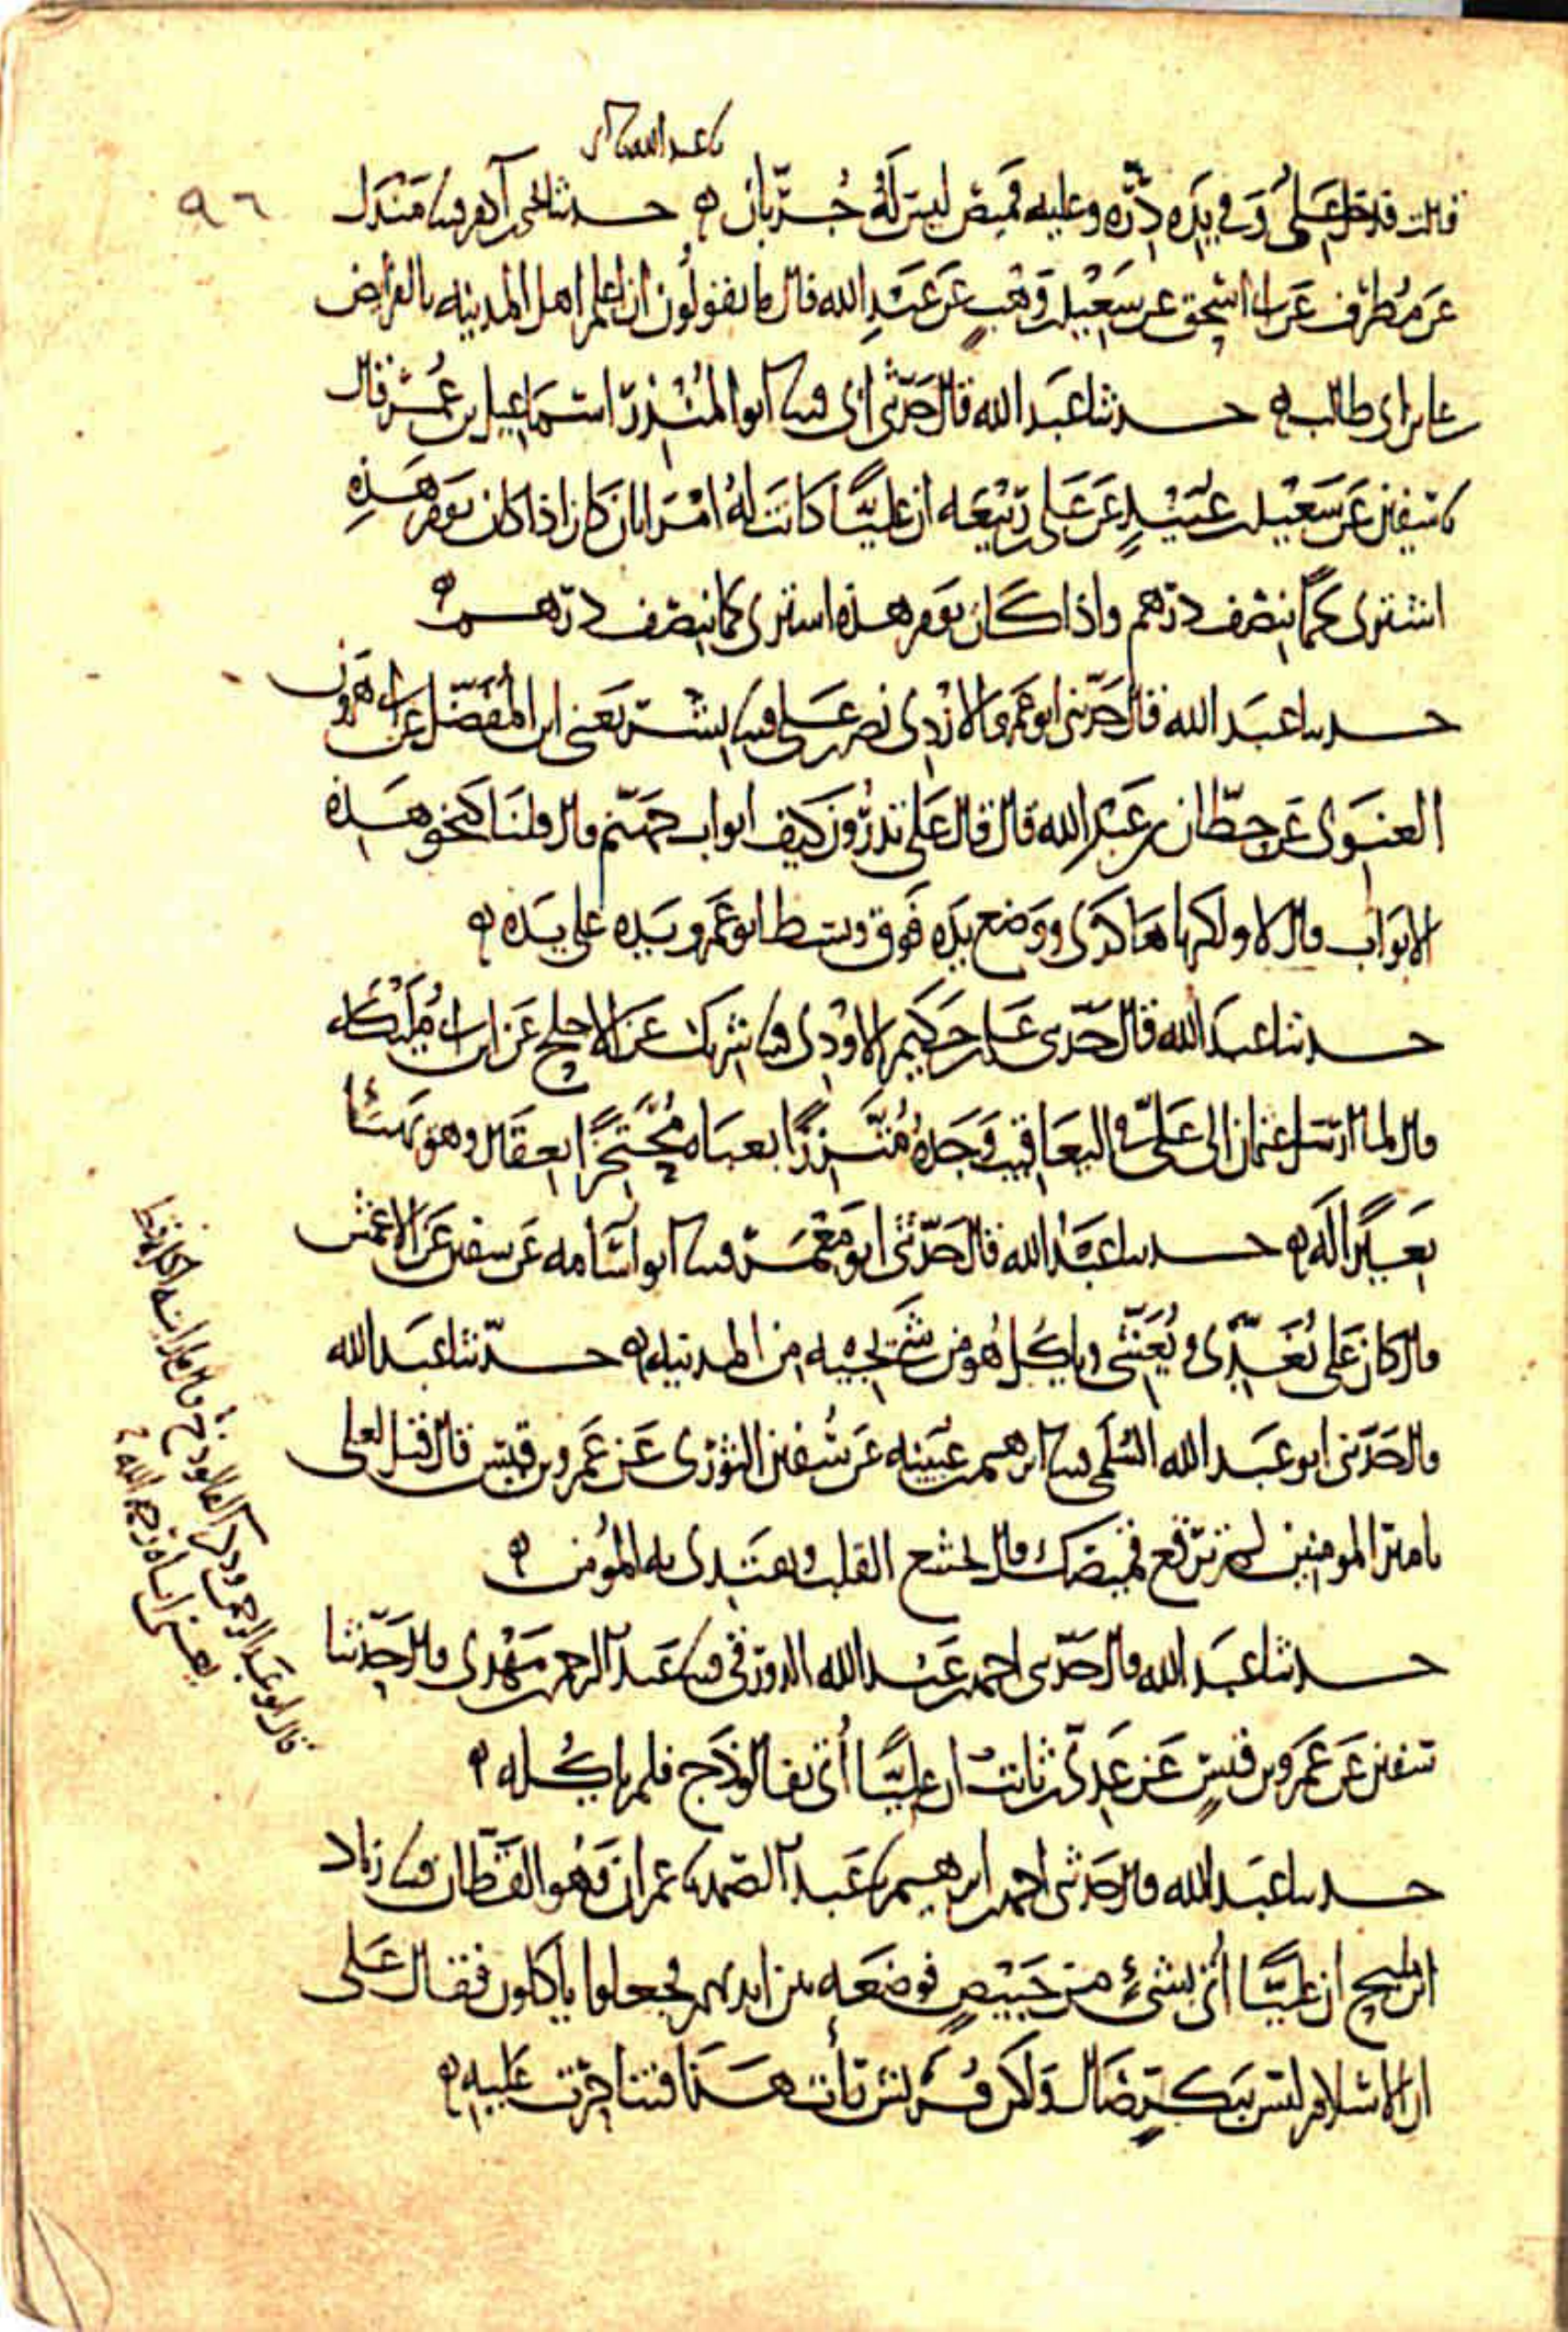 نا عبد الله قال
٩٦
قالت فدخل على وفي يده درة وعليه قميص ليس له جربان ه حدثنا يحيى بن آدم قثنا مندل
عن مطرف عن ابي اسحق عن سعيد بن وهب عن عبد الله قال كانوا يقولون ان اعلم اهل المدينه بالفرايض
علي بن ابي طالب ه حدثنا عبد الله قال حدثني ابي قثنا ابو المنذر اسماعيل بن عمر قال
نا سفين عن سعيد بن عبيد عن علي بن ربيعه ان عليا كانت له امراتان كان اذا كان يوم هذه
اشترى لحما بنصف درهم واذا كان يوم هذه اشترى لحما بنصف درهم ه
حدثنا عبد الله قال حدثني ابو عمرو الازدي نصر بن علي قثنا بشر يعني ابن المفضل عن ابي هرون
الغنوي عن حطان بن عبد الله قال قال علي تدرون كيف ابواب جهنم قال قلنا كنحو هذه
الابواب قال لا ولكنها هاكذى ووضع يده فوق وبسط ابو عمرو يده على يده ه
حدثنا عبد الله قال حدثني علي بن حكيم الاودي قثنا شريك عن الاجلح عن ابن ابي مليكه
قال لما ارسل عثمان الى علي في اليعاقيب وجده متزرا بعباه محتجزا بعقال وهو يهنئا
بعيرا له ه حدثنا عبد الله قال حدثني ابو معمر قثنا ابو اسامه عن سفين عن الاعمش
قال كان علي يغدي ويعشي وياكل هو من شي يجيه من المدينه ه حدثنا عبد الله
قال حدثني ابو عبد الله السلمي قثنا ابرهيم بن عيينه عن سفين الثوري عن عمرو بن قيس قال قيل لعلي
يا امير المومنين لم ترقع قميصك قال يخشع القلب ويقتدي به المؤمن ه
حدثنا عبد الله قال حدثني احمد بن عبد الله الدورقي قثنا عبد الرحمن بن مهدي قال حدثنا
سفين عن عمرو بن قيس عن عدي بن ثابت ان عليا أتى بفالوذج فلم ياكله ه
حدثنا عبد الله قال حدثني احمد بن ابرهيم نا عبد الصمد نا عمران وهو القطان قثنا زياد
ابن مليح ان عليا أتى بشئ من خبيص فوضعه بين ايديهم فجعلوا يأكلون فقال علي
ان الاسلام ليس ببكر ضال ولكن قريش رأت هذا فتناحرت عليه ه
قال ابو عبد الرحمن وذكر الفالوذج قال ما رايته اكله قط
يعني اباه رحمه الله